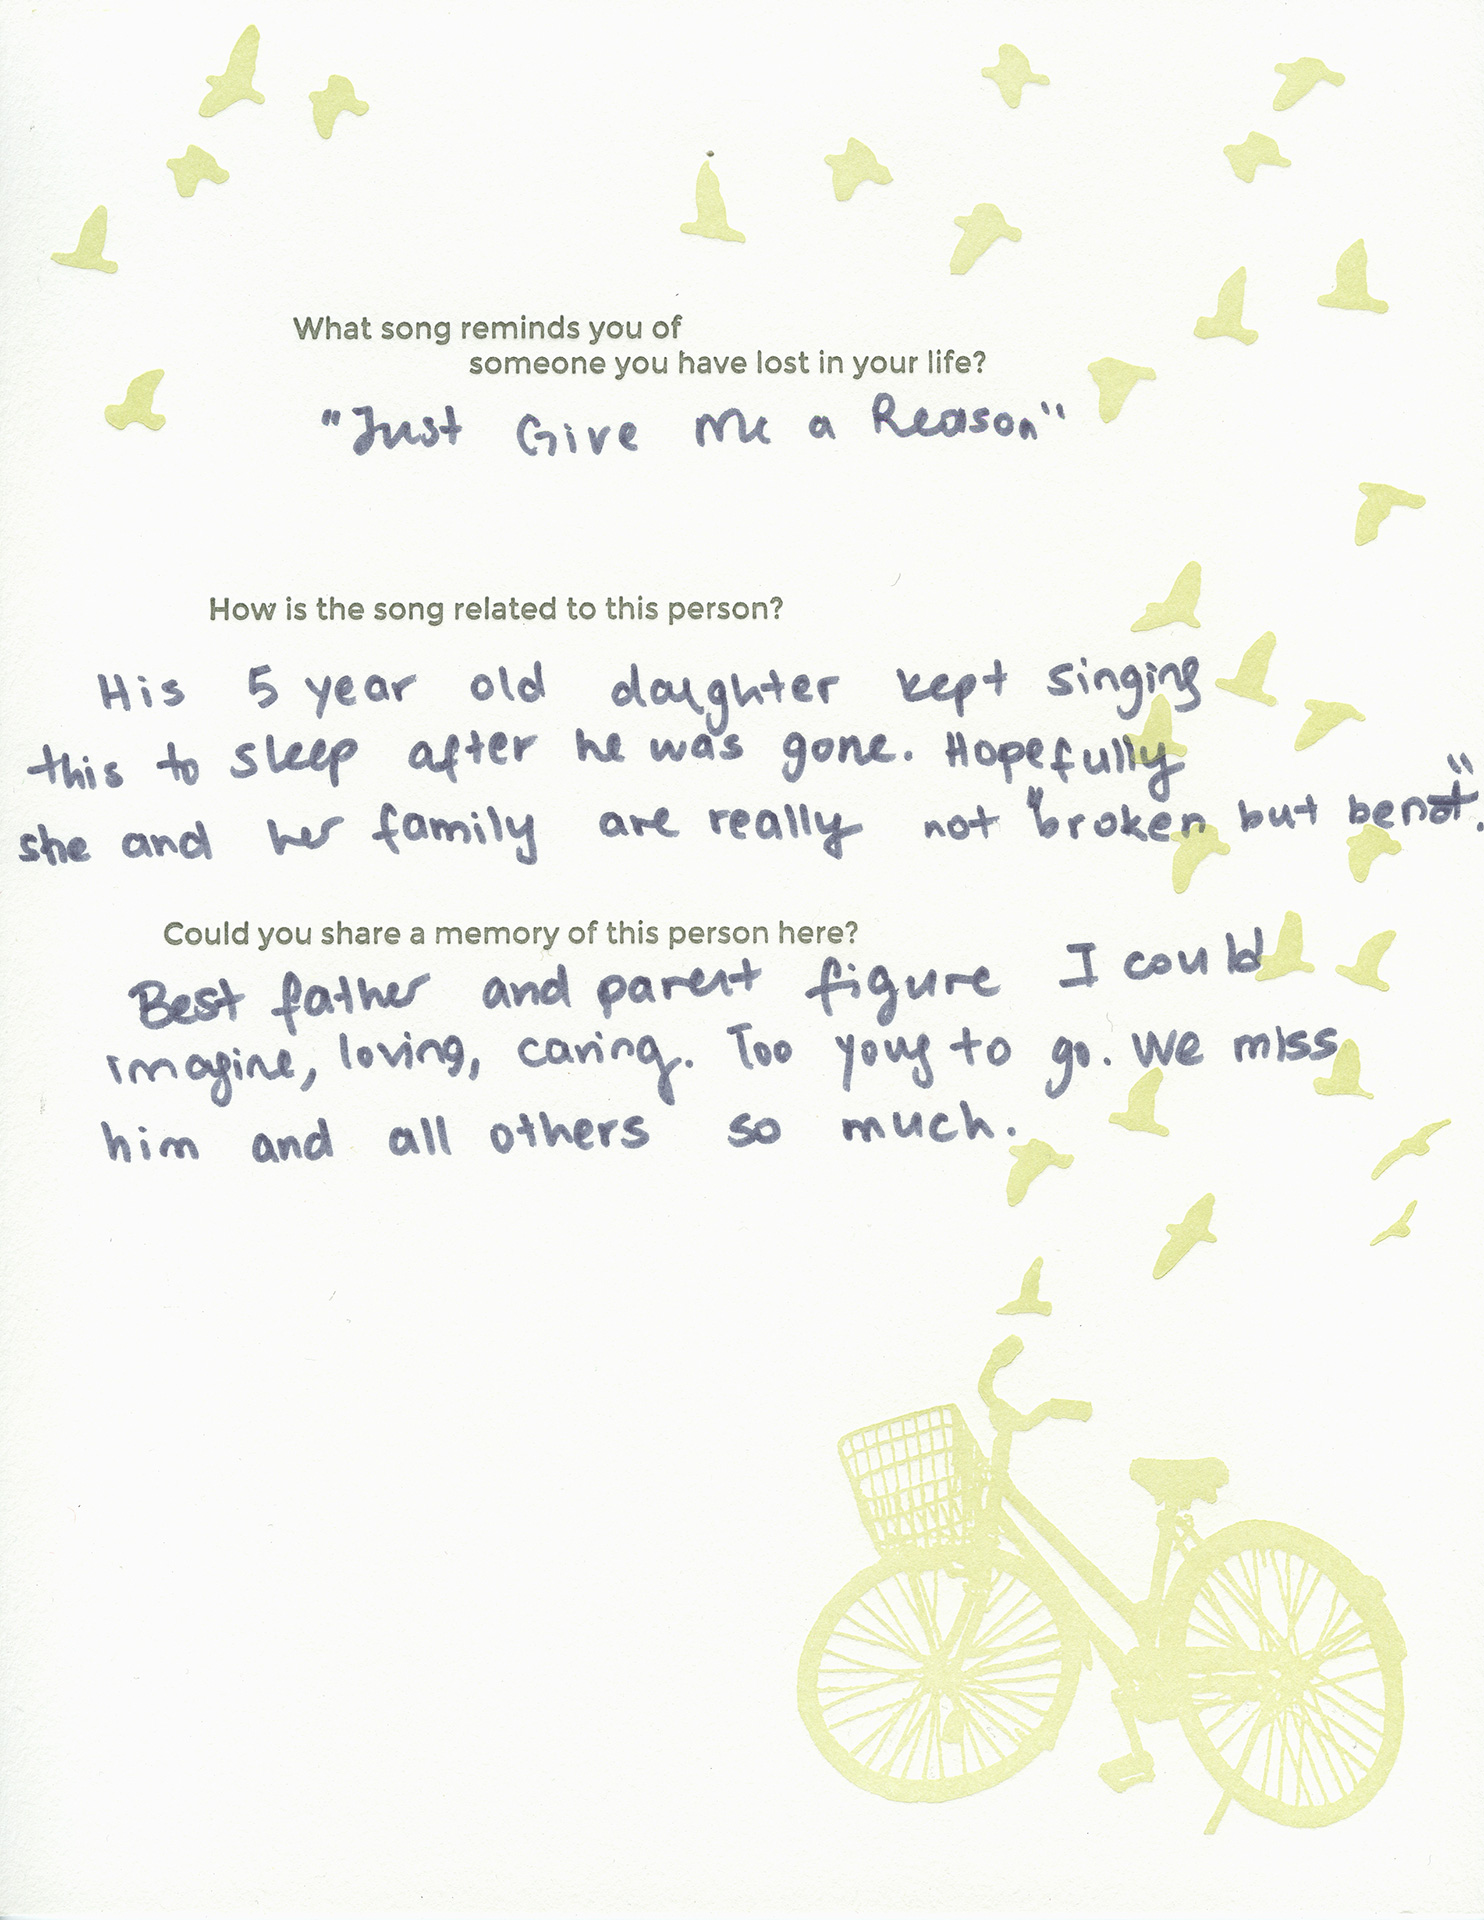 What song reminds you of
someone you have lost in your life?
"Just Give Me a Reason"
How is the song related to this person?
His 5 year old daughter kept singing
this to sleep after he was gone. Hopefully
she and her family are really not "broken but bent".
Could you share a memory of this person here?
Best father and parent figure I could
imagine, loving, caring. Too young to go. We miss
him and all others so much.